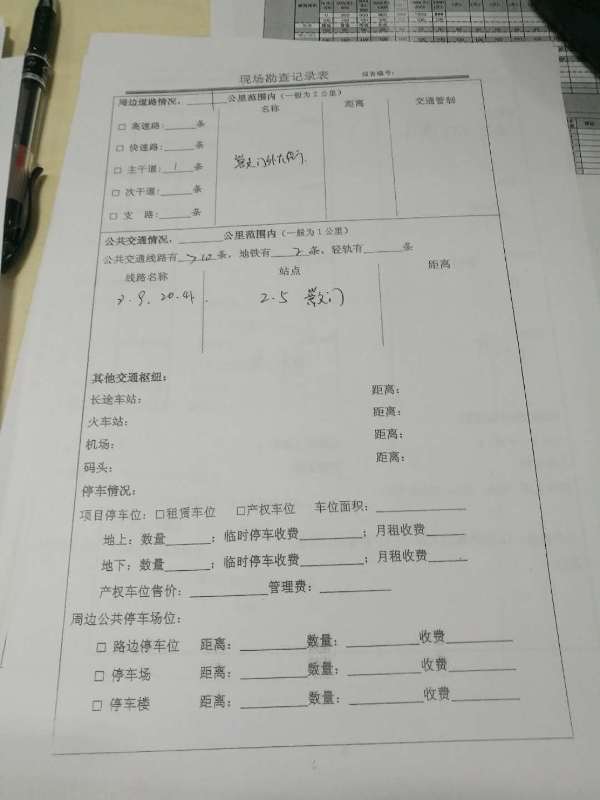 现场勘查记录表 报告编号:
周边道路情况,______公里范围内(一般为2公里)
名称 距离 交通管制
□ 高速路:_____条
□ 快速路:_____条
□ 主干道:__1__条 崇文门外大街
□ 次干道:_____条
□ 支 路:_____条
公共交通情况,______公里范围内(一般为1公里)
公共交通线路有_>10_条,地铁有__2__条,轻轨有_____条
线路名称 站点 距离
3. 9. 20. 41. 2. 5 崇文门
其他交通枢纽:
长途车站: 距离:
火车站: 距离:
机场: 距离:
码头: 距离:
停车情况:
项目停车位:□租赁车位 □产权车位 车位面积:__________
地上:数量______;临时停车收费________;月租收费_____
地下:数量______;临时停车收费________;月租收费_____
产权车位售价:__________管理费:_________
周边公共停车场位:
□ 路边停车位 距离:________数量:_________收费________
□ 停车场 距离:________数量:_________收费________
□ 停车楼 距离:________数量:_________收费________